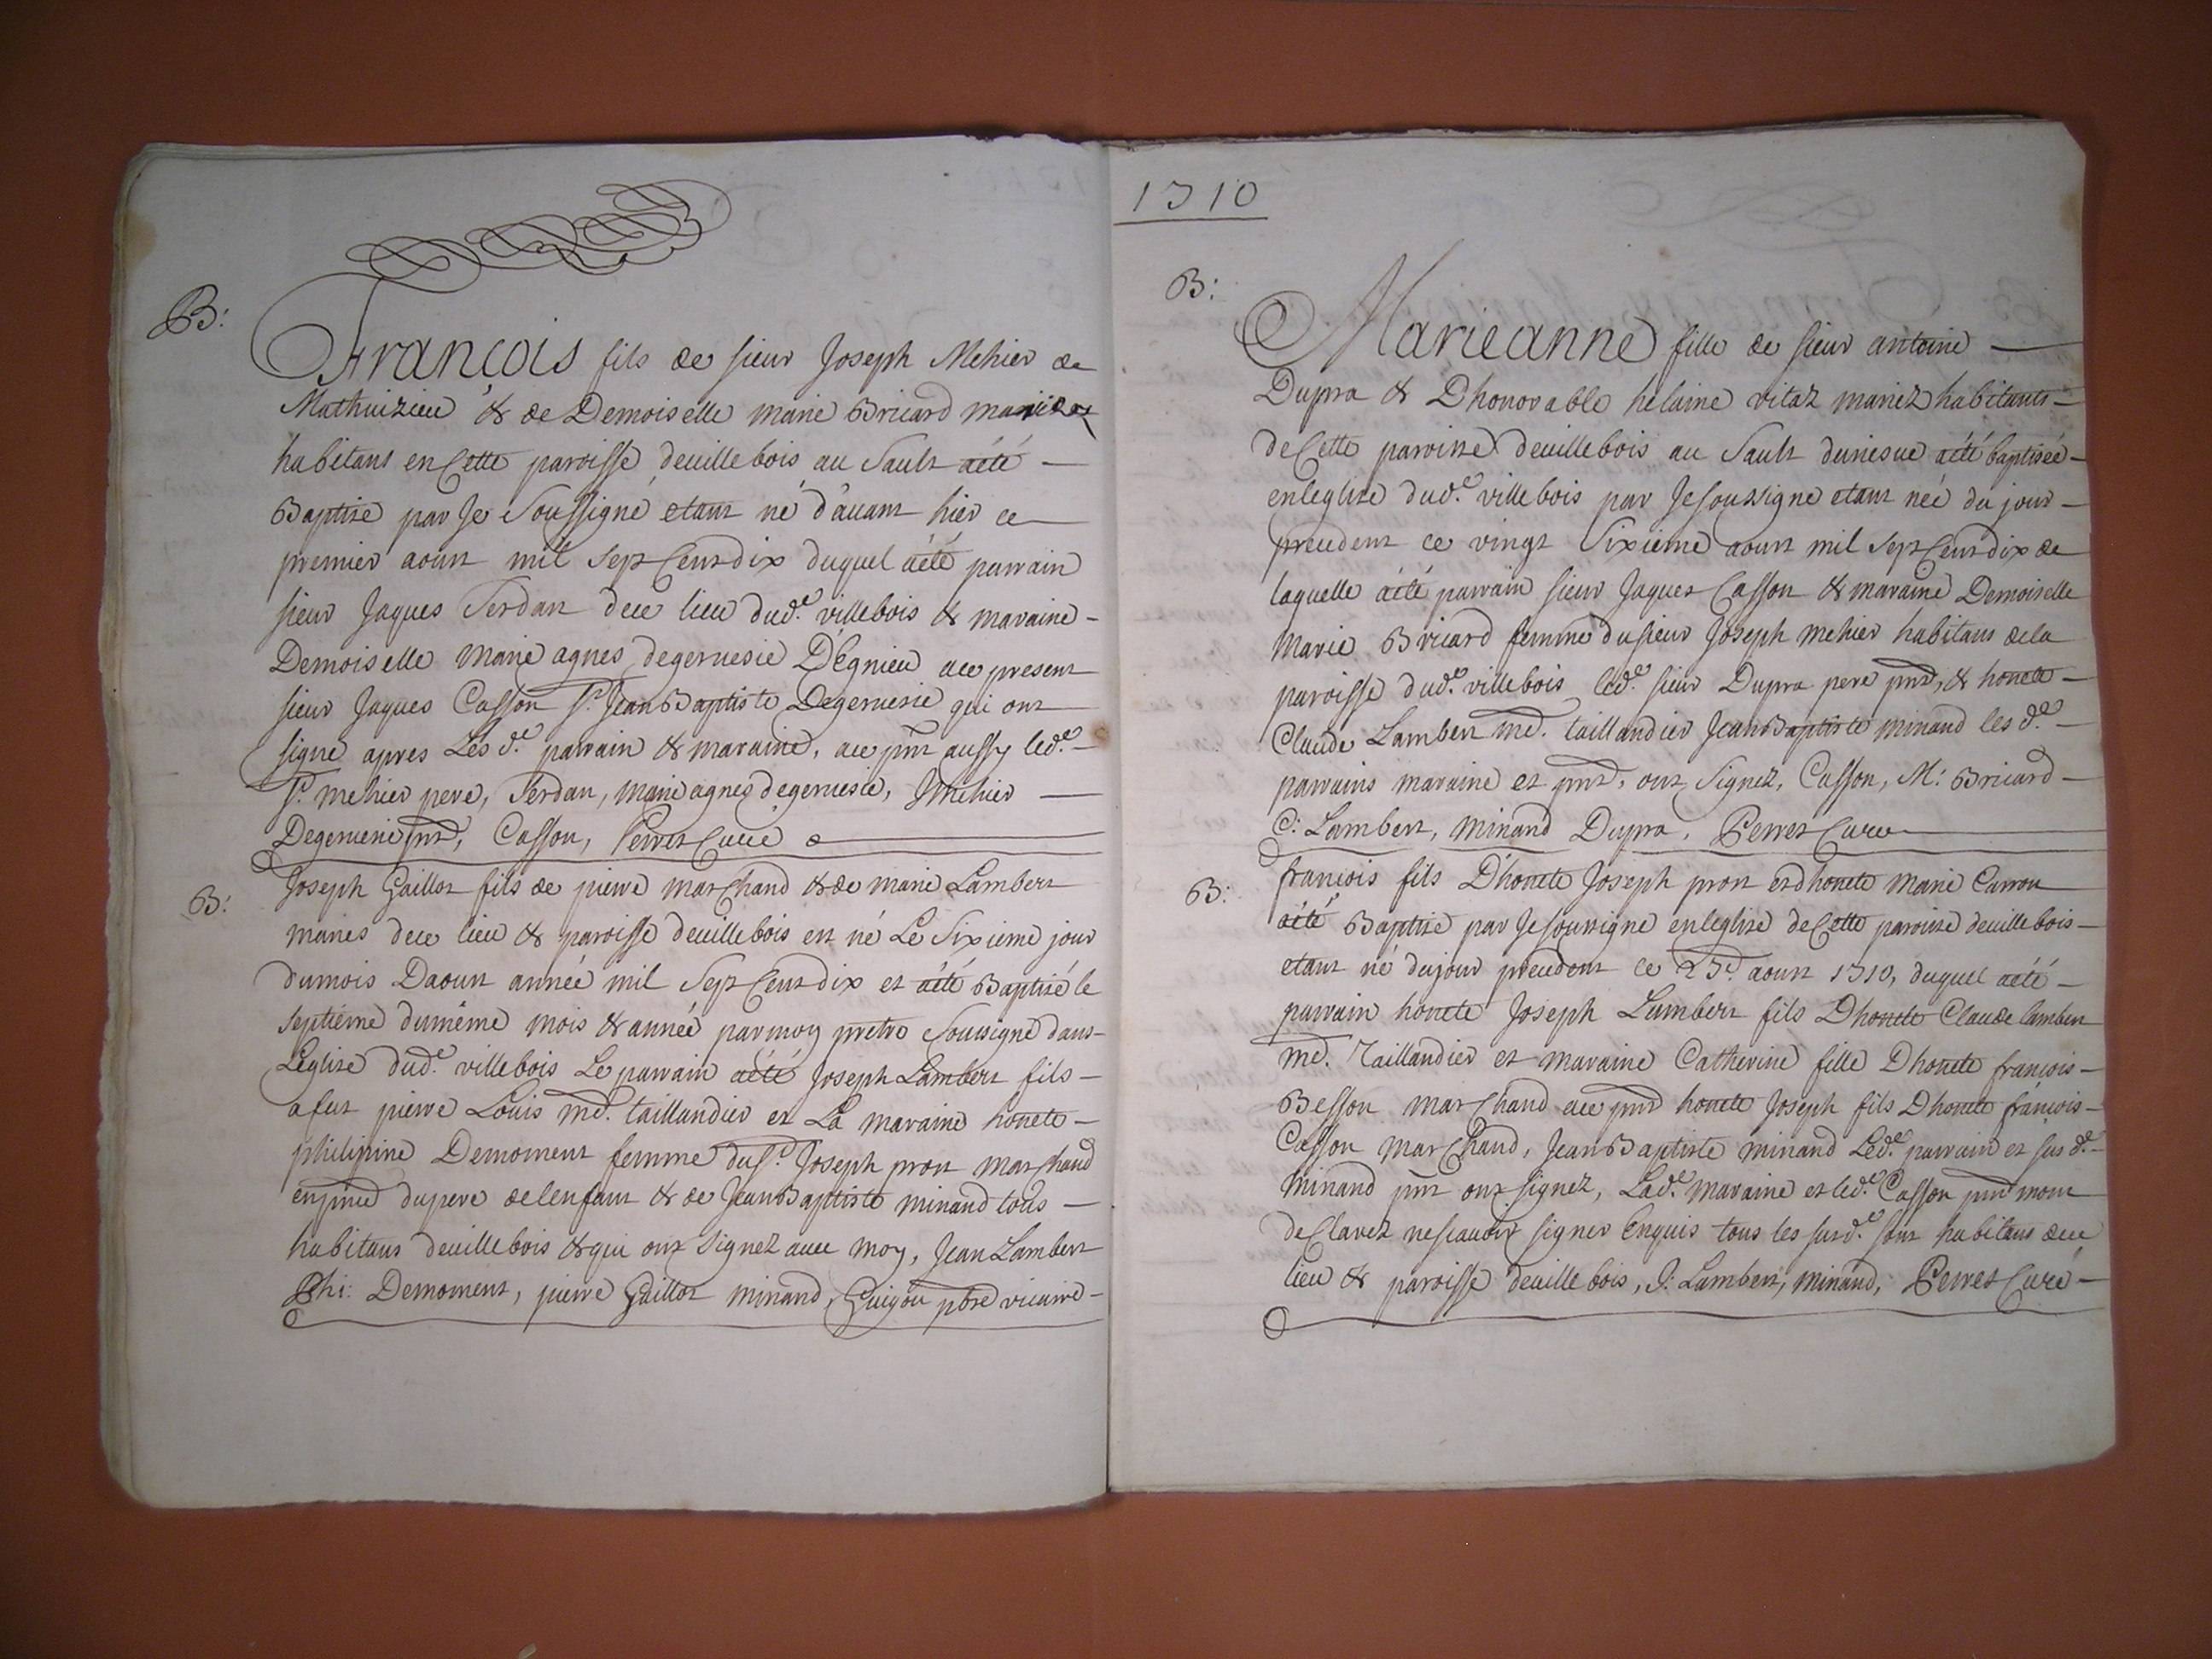 B:
François fils de sieur Joseph Mehier de
Mathuizieu & de Demoiselle marie Bricard mariez
habitans en Cette paroisse deuillebois au Sault aété
Baptisé par Je Soussigné etant né d'auant hier ce
premier aoust mil sept Cent dix duquel aété parrain
sieur Jaques Serdan dece lieu dud.e villebois & maraine
Demoiselle marie agnes degeruesie D'Egnieu ace present
sieur Jaques Casson Sr. Jean Baptiste Degeruesie qui ont
signé apres Les d.e parrain & maraine, ace pnt aussy led.e
Sr. mehier pere, Serdan, marie agnes degeruesie, J mehier
Degeruesie pnt, Casson, Perret Curé
B:
Joseph Gaillot fils de pierre marChand & de marie Lambert
mariés dece lieu & paroisse deuillebois est né Le Sixieme jour
dumois Daoust année mil Sept Cent dix et aété Baptizé le
septiéme dumême mois & année parmoy pretre Soussigné dans
Leglise dud.e villebois Le parrain aété Joseph Lambert fils
afut pierre Louis md. taillandier et La maraine honete
philipine Demoment femme du Sr. Joseph prost marchand
enpnce dupere delenfant & de Jean Baptiste minand tous
habitans deuillebois & qui ont signez auec moy, Jean Lambert
Phi: Demoment, pierre Gaillot minand, Guigou pbre vicaire
1710
B:
Marieanne fille de sieur antoine
Dupra & Dhonorable helaine vitaz mariez habitants
deCette paroisse deuillebois au Sault aété baptiséé
enleglise dud.e villebois par Jesoussigné etant néé du jour
precedent ce vingt Sixieme aoust mil sept Cent dix de
laquelle aété parrain sieur Jaques Casson & maraine Demoiselle
Marie Bricard femme dusieur Joseph mehier habitans dela
paroisse dud.e villebois led.e sieur Dupra pere pnt, & honete
Claude Lambert md. taillandier Jean Baptiste minand les d.e
parrains maraine et pnt, ont signez, Casson, M: Bricard
C: Lambert, minand Dupra, Perret Curé
B:
françois fils D'honete Joseph prost et dhonete marie Carron
aété Baptisé par Jesoussigné enleglise deCette paroisse deuillebois
etant né dujour precedent ce 27e. aoust 1710, duquel aété
parrain honete Joseph Lambert fils Dhonete Claude lambert
md. Taillandier et maraine Catherine fille Dhonete françois
Besson marChand ace pnt honete Joseph fils Dhonete françois
Casson marChand, Jean Baptiste minand Led.e parrain et sus d.e
minand pnt ont signez, Lad.e maraine et led.e Casson pnt mont
deClarez nescauoir signer Enquis tous les susd.e sont habitans dece
lieu & paroisse deuillebois, J: Lambert, minand, Perret Curé